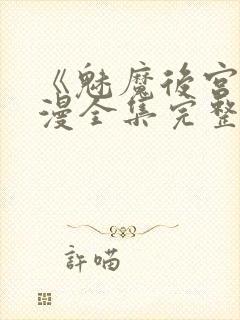 《魅魔後宮
漫全集完整
許喵